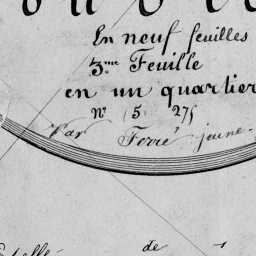 En neuf feuilles
3.me Feuille
en un quartier
N° (5) 275
Par Ferré jeune.
de